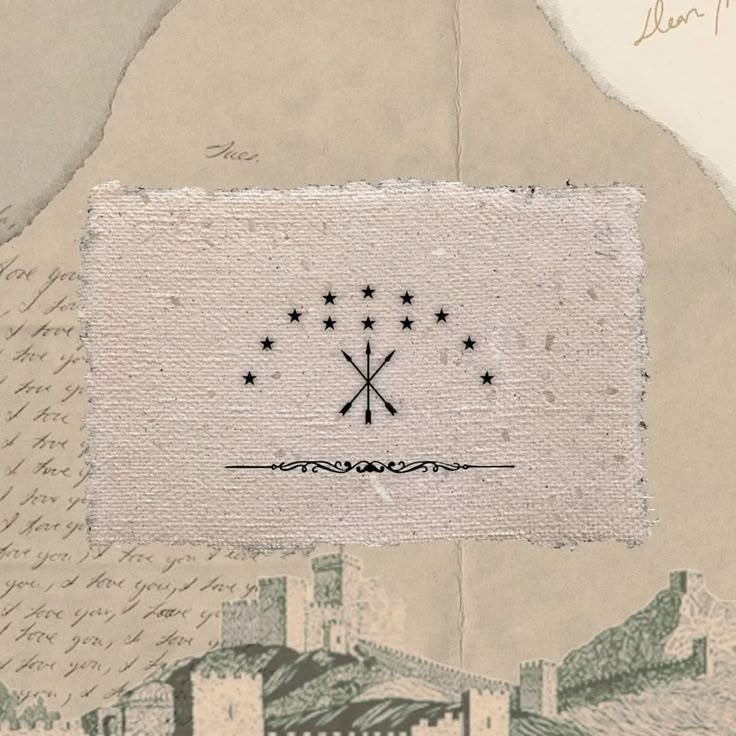 Dear
Tues.
love you
I love
I love yo
I love yo
I love
I love
I love y
I love y
I love you
love you
love you, I love you, I love
you, I love you, I love y
I love you, I love you
I love you, I love y
love you, I love
you, I love